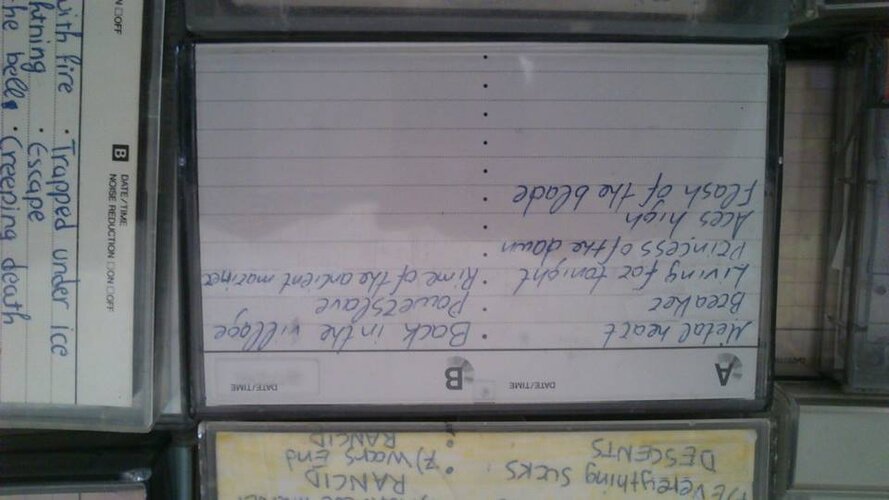 A
DATE/TIME
Metal heart
Breaker
Living for tonight
Princess of the dawn
Aces high
Flash of the blade
B
DATE/TIME
Back in the village
Powerslave
Rime of the ancient mariner
ON □OFF
B DATE/TIME
NOISE REDUCTION □ON □OFF
with fire • Trapped under ice
htning • Escape
he bells • Creeping death
EVERYTHING SUCKS
DESCENTS
RANCID
7) WARS END
RANCID